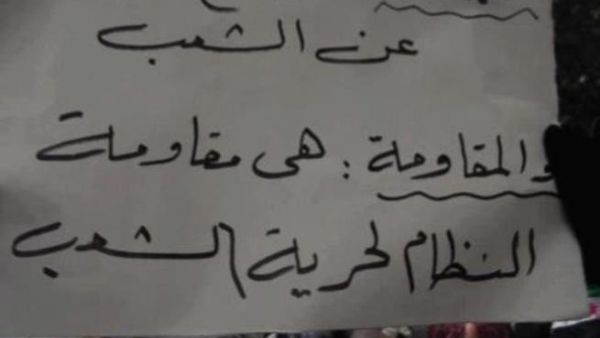 عن الشعب
والمقاومة : هى مقاومة
النظام لحرية الشعب